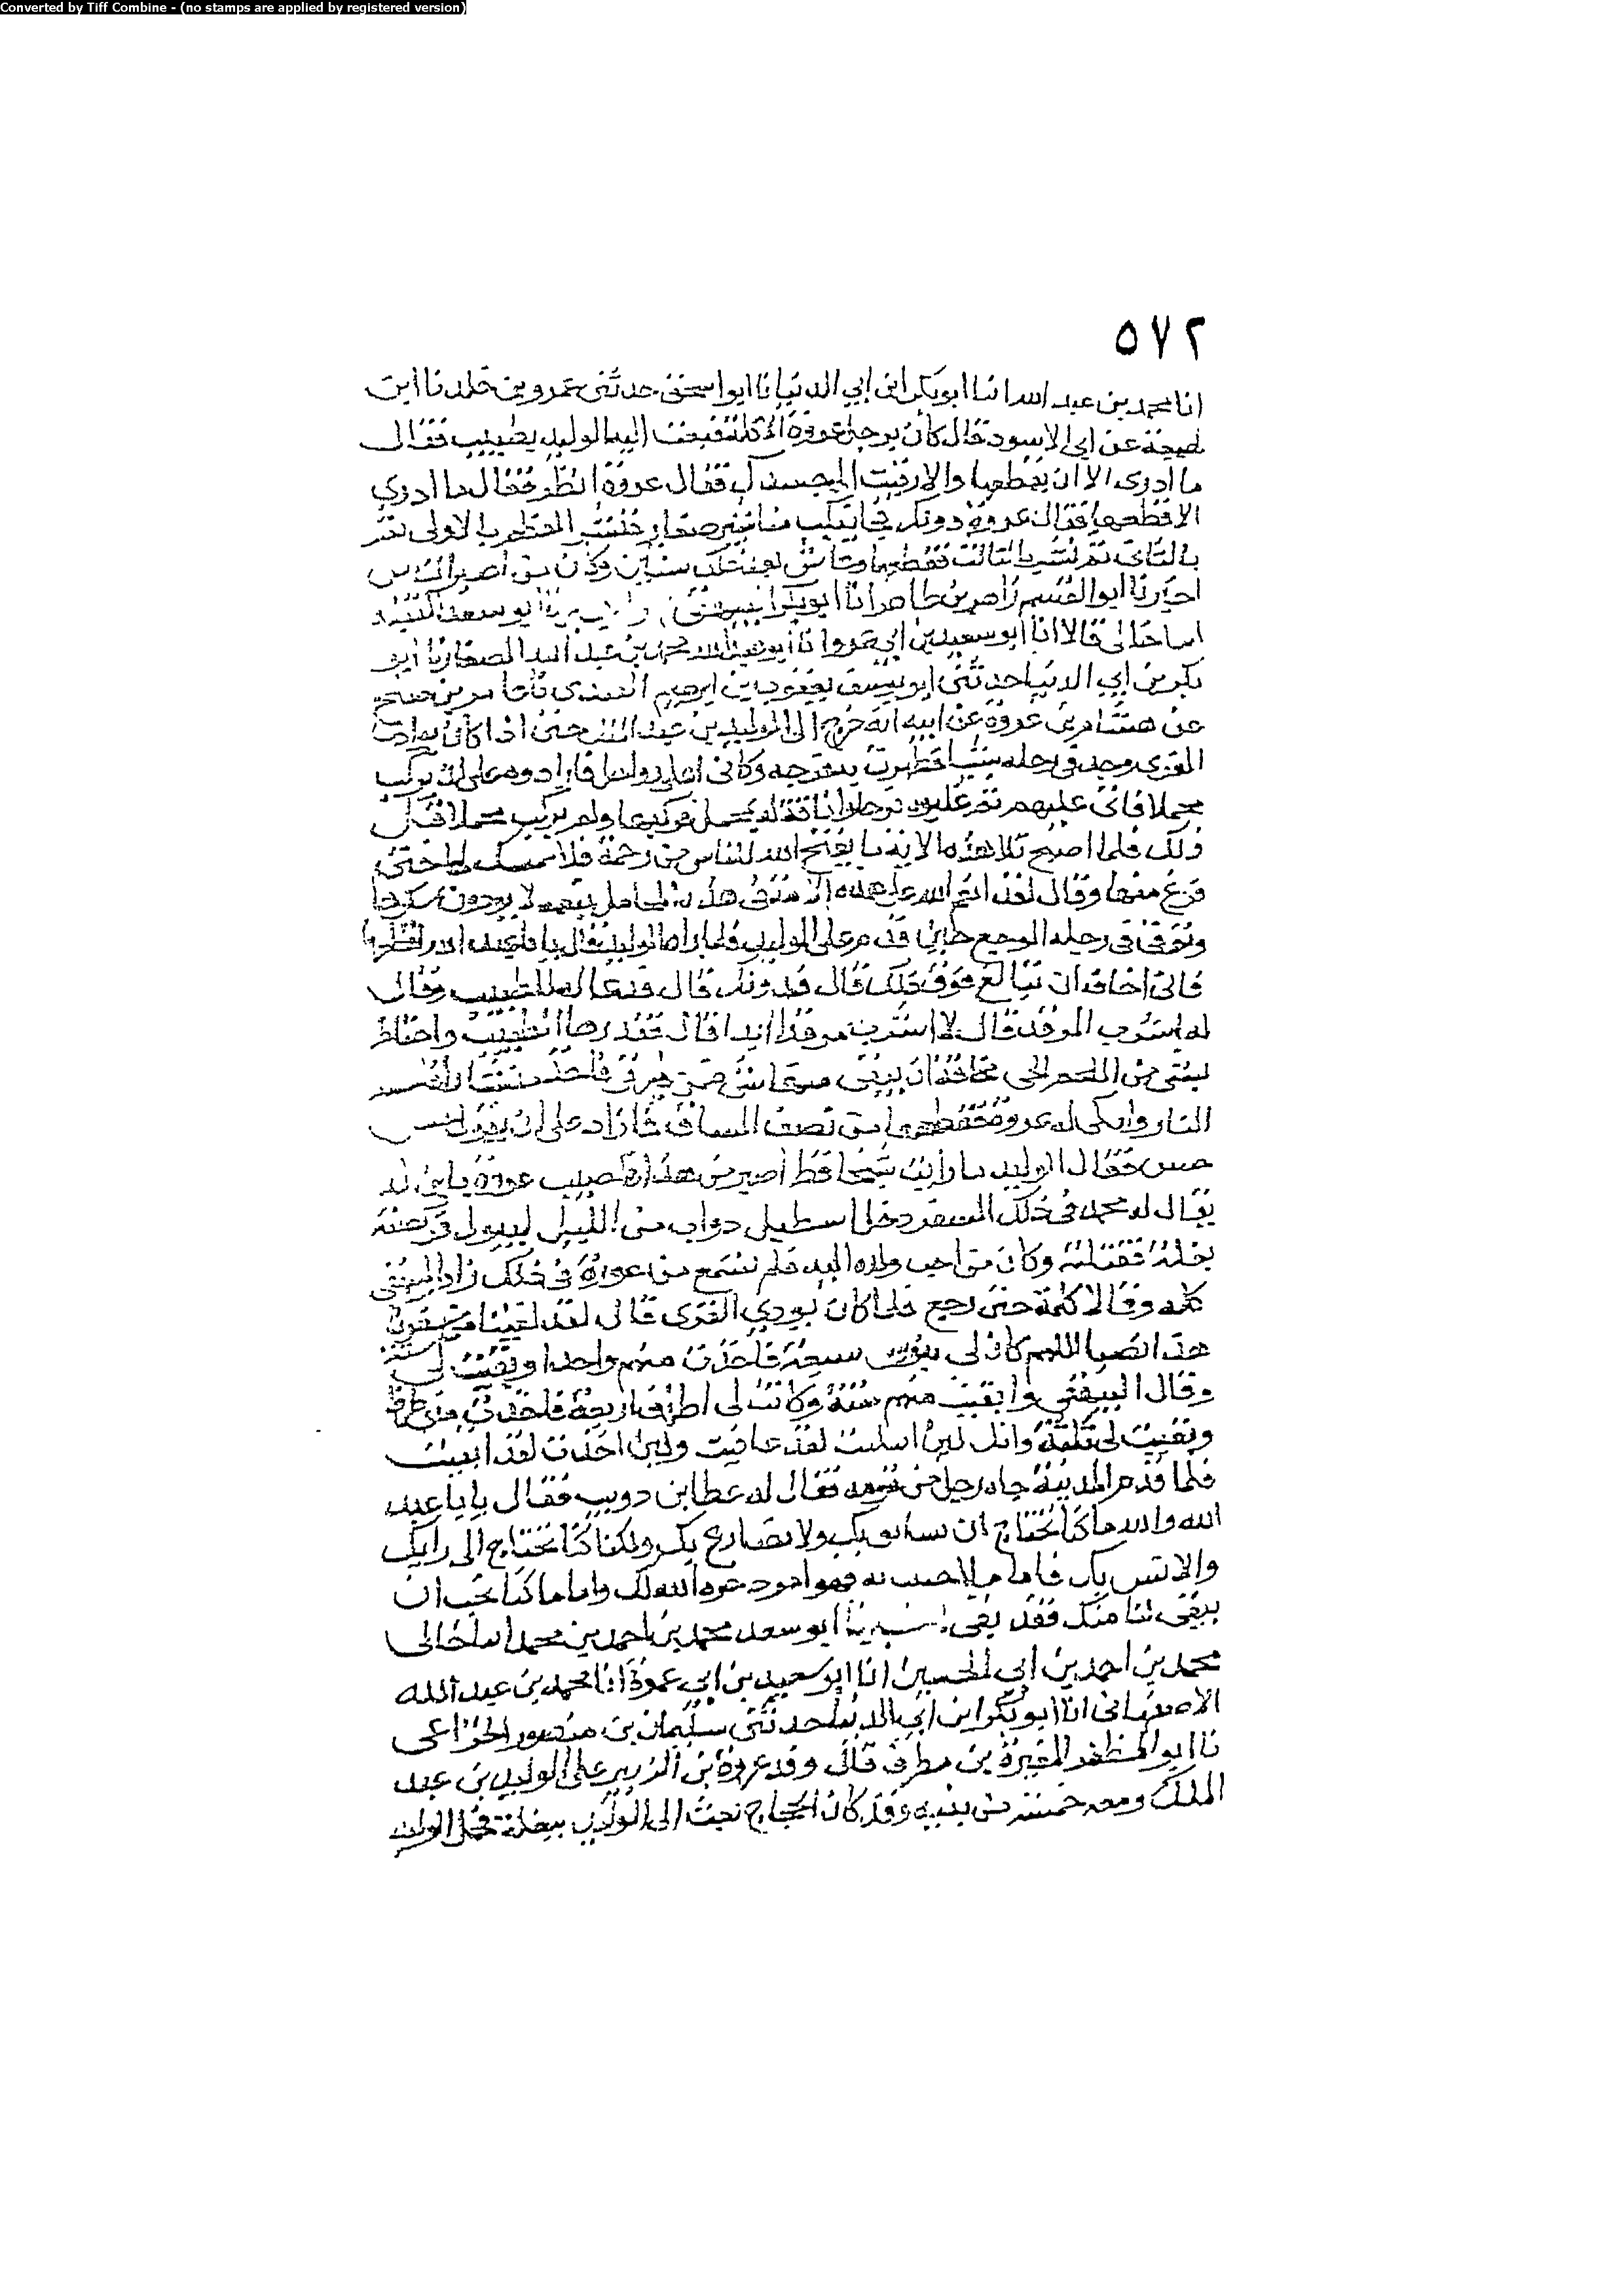 Converted by Tiff Combine - (no stamps are applied by registered version)
٥٧٢
انا محمد بن عبد الله انا ابو بكر ابن ابي الدنيا نا ابو اسحق حدثني عمرو بن خلد نا ابن
لهيعة عن ابي الاسود قال كان برجل عروة الاكلة فبعث اليه الوليد بطبيب فقال
ما ادري الا ان يقطعها والا رقيت الى جسدك فقال عروة انظر فقال ما ادري
الا قطعها فقال عروة دونك مناشير صغار فنشر العظم بالاولى ثم
بالثاني ثم نشر بالثالث فقطعها وعاش بعد ذلك سنين وكان من اصبر الناس
اخبرنا ابو القسم زاهر بن طاهر انا ابو بكر البيهقي ابو سعد
اساخالى قالا انا ابو سعيد بن ابي عمرو انا ابو عبد الله محمد بن عبد الله الصفار نا ابو
بكر بن ابي الدنيا حدثني ابو يوسف يعقوب بن ابرهيم نا عامر بن صلح
عن هشام بن عروة عن ابيه انه خرج الى الوليد بن عبد الملك حتى اذا كان بوادي
القرى وجد في رجله شيئا فظهرت به قرحه وكانى فارادوه على ان يركب
محملا فابى عليهم ثم غلبوه فرحلوا ناقة له بمحمل فركبها ولم يركب محملا قبل
ذلك فلما اصبح تلا هذه الاية ما يفتح الله للناس من رحمة فلا ممسك لها حتى
فرغ منها وقال لقد انعم الله على هذه الامة في هذه المحامل بنعمه لا يودون شكرها
وترقى في رجله الوجع حتى قدم على الوليد فلما راه الوليد قال يا ابا عبد الله اقطعها
فاني اخاف ان تبالغ فوق ذلك قال فدونك قال فدعا له الطبيب وقال
له اشرب المرقد قال لا اشرب مرقدا ابدا قال فقدرها الطبيب واحتاط
بشي من اللحم الحي مخافة ان يبقى منها شي فاخذ منشارا فامسه
النار واتكى له عروة فقطعها من نصف الساق فما زاد على ان يقول حس
حس فقال الوليد ما رايت شيخا قط اصبر من هذا واصيب عروة بابن له
يقال له محمد في ذلك السفر دخل اسطبل دواب من الليل ليبول فركضته
بغلة فقتلته وكان من احب ولده اليه فلم نسمع من عروة في ذلك زاد البيهقي
كله وقالا كلمة حتى رجع فلما كان بوادي القرى قال لقد لقينا من سفرنا
هذا نصبا اللهم كان لي بنون سبعة فاخذت منهم واحدا وبقيت لي ستة
وقال البيهقي وابقيت منهم ستة وكانت لي اطراف اربعة فاخذت مني طرفا
وبقيت لي ثلثة وانك لئن ابليت لقد عافيت ولين اخذت لقد ابقيت
فلما قدم المدينة جاه رجل من قومه فقال له عطا بن ذويب فقال يا ابا عبد
الله والله ما كنا نحتاج ان نسابق بك ولا نصارع بك ولكنا كنا نحتاج الى رايك
والانس بك فاما ما اصبت به فهو امر ذخره الله لك واما ما كنا نحب ان
يبقى لنا منك فقد بقى ابو سعد محمد بن احمد بن محمد اساخالى
محمد بن احمد بن ابي الحسين انا ابو سعيد بن ابي عمرة انا محمد بن عبد الله
الاصبهانى انا ابو بكر ابن ابي الدنيا حدثني سليمان بن منصور الخزاعي
نا ابو المظفر المغيرة بن مطرف قال وفد عروة بن الزبير على الوليد بن عبد
الملك ومعه خمسة من بنيه وقد كان الحجاج بعث الى الوليد ببغلة